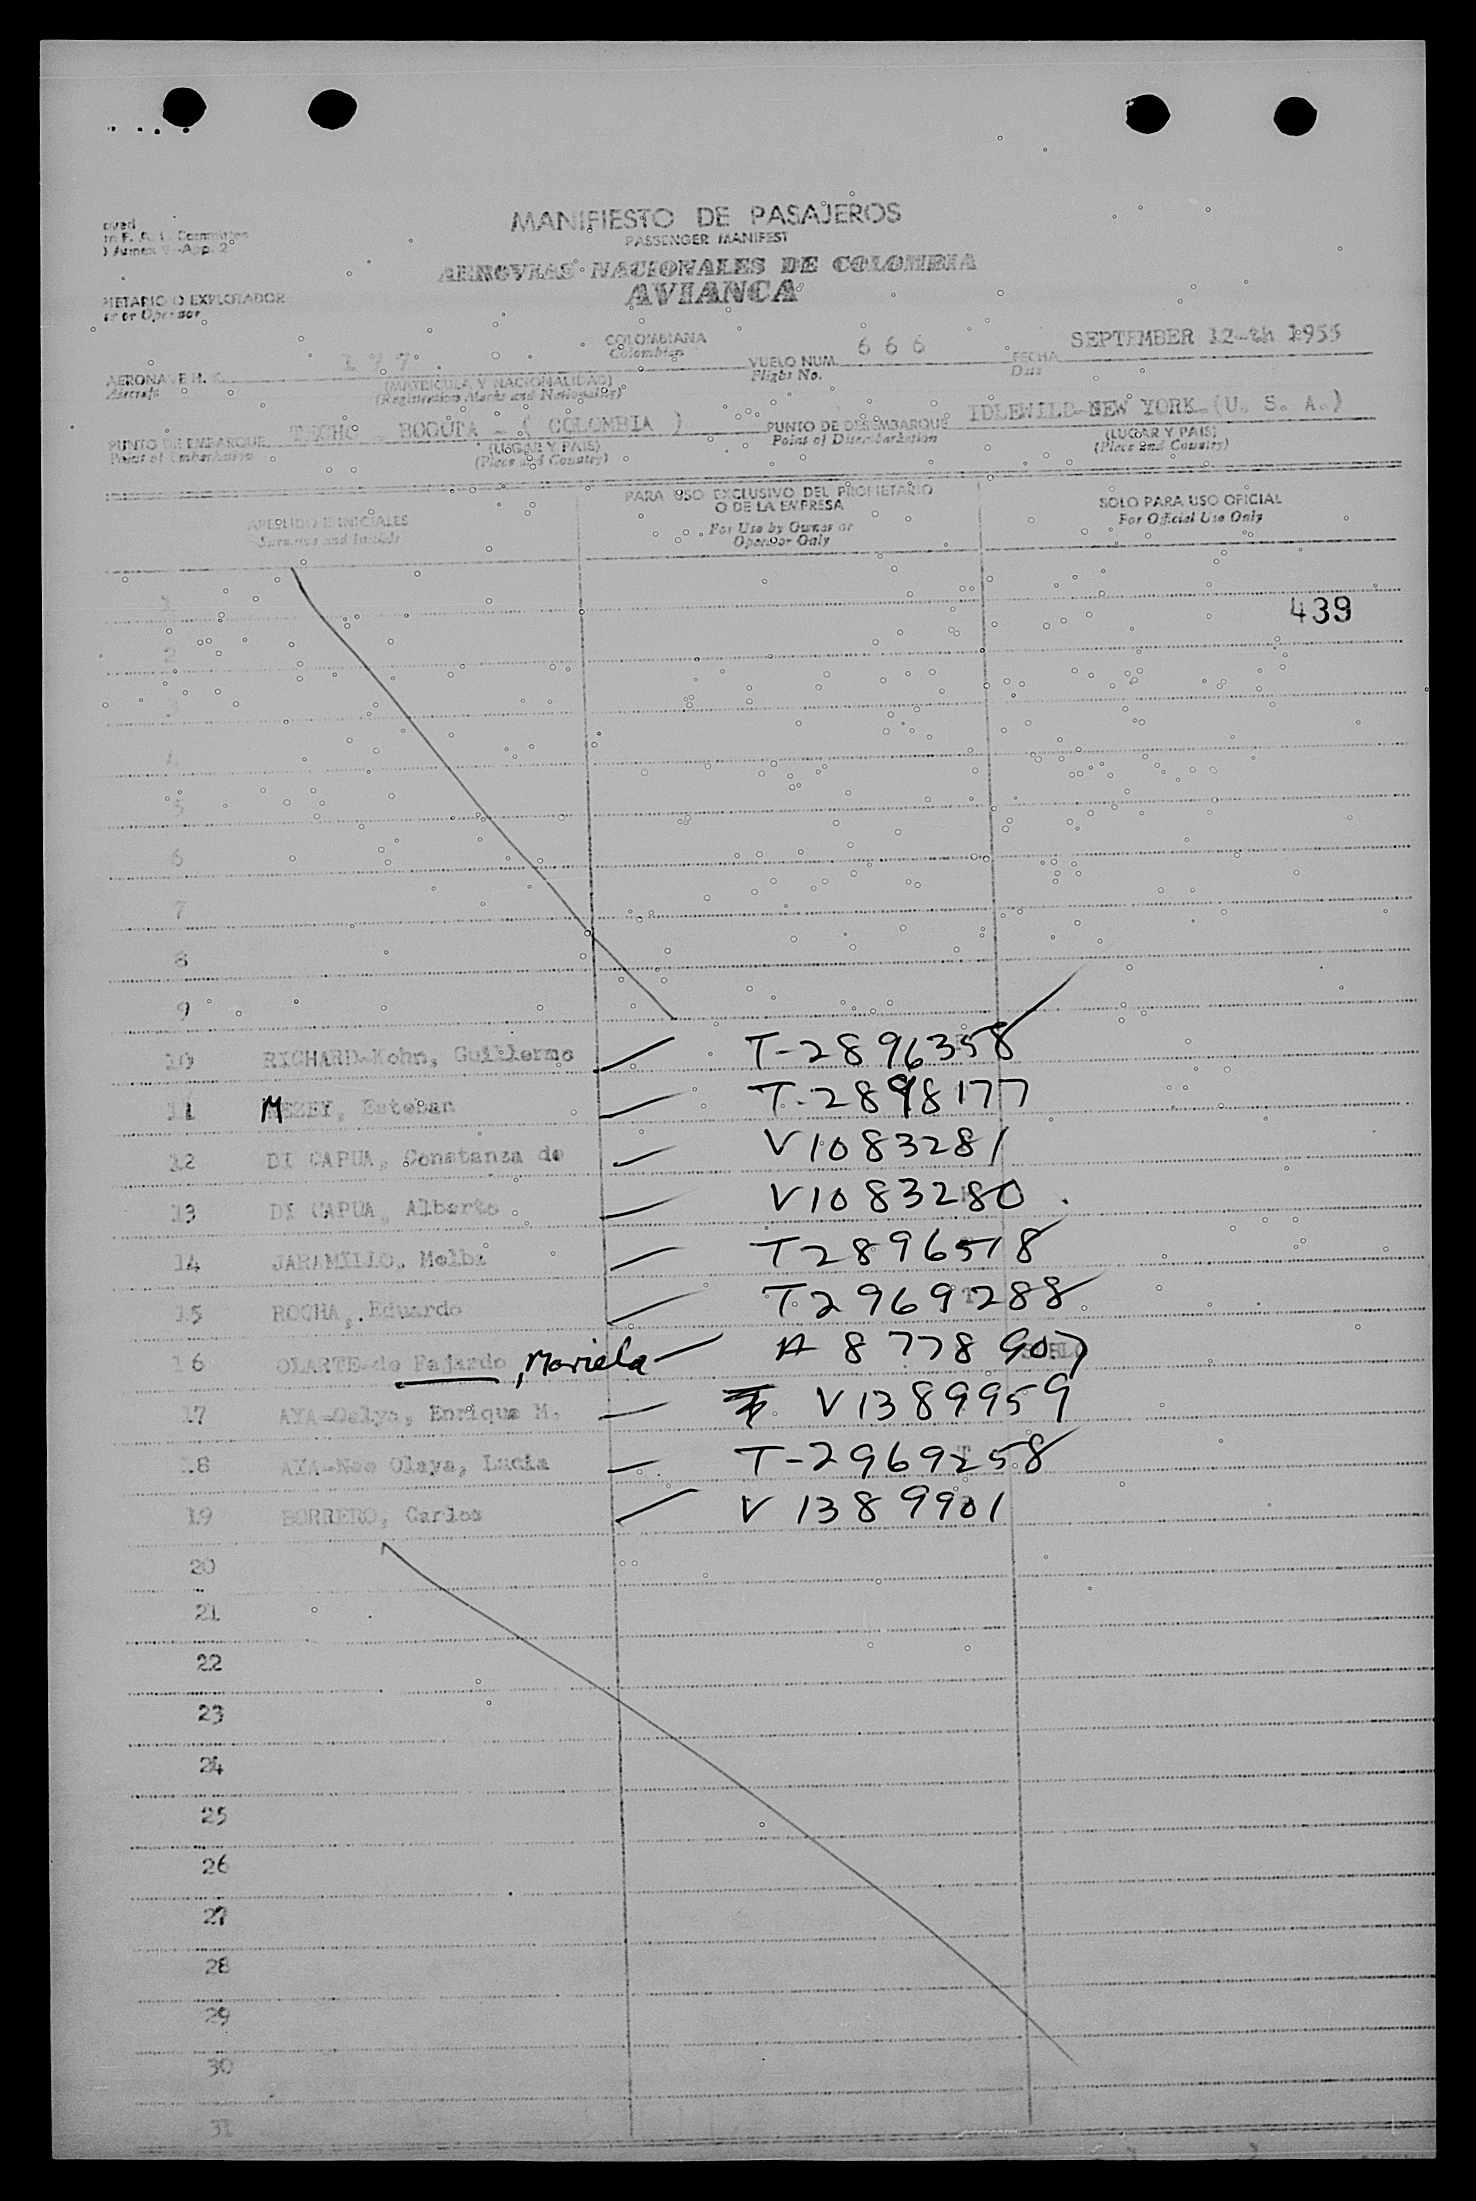 MANIFIESTO DE PASAJEROS
PASSENGER MANIFEST
AEROVIAS NACIONALES DE COLOMBIA
AVIANCA
Annex 9-App. 2
IETARIO O EXPLOTADOR
or Operator
COLOMBIANA
Colombian
AERONAVE H. K.
Aircraft
(MATRICULA Y NACIONALIDAD)
(Registration Marks and Nationality)
VUELO NUM. 6 6 6
Flight No.
FECHA SEPTEMBER 12-th 1955
Date
PUNTO DE EMBARQUE TECHO - BOGOTA - ( COLOMBIA )
Point of Embarkation
(LUGAR Y PAIS)
(Place and Country)
PUNTO DE DESEMBARQUE IDLEWILD-NEW YORK-(U. S. A.)
Point of Disembarkation
(LUGAR Y PAIS)
(Place and Country)
APELLIDO E INICIALES
Surname and Initials
PARA USO EXCLUSIVO DEL PROPIETARIO
O DE LA EMPRESA
For Use by Owner or
Operator Only
SOLO PARA USO OFICIAL
For Official Use Only
1
439
2
3
4
5
6
7
8
9
10 RICHARD-Kohn, Guillermo T-2896358
11 MEZEY, Esteban T-2898177
12 DI CAPUA, Constanza de V1083281
13 DI CAPUA, Alberto V1083280
14 JARAMILLO, Melba T2896518
15 ROCHA, Eduardo T2969288
16 OLARTE-de Fajardo, Mariela A 8778907
17 AYA-Oslya, Enrique M. V1389959
18 AYA-Nee Olaya, Lucia T-2969258
19 BORRERO, Carlos V 1389901
20
21
22
23
24
25
26
27
28
29
30
31